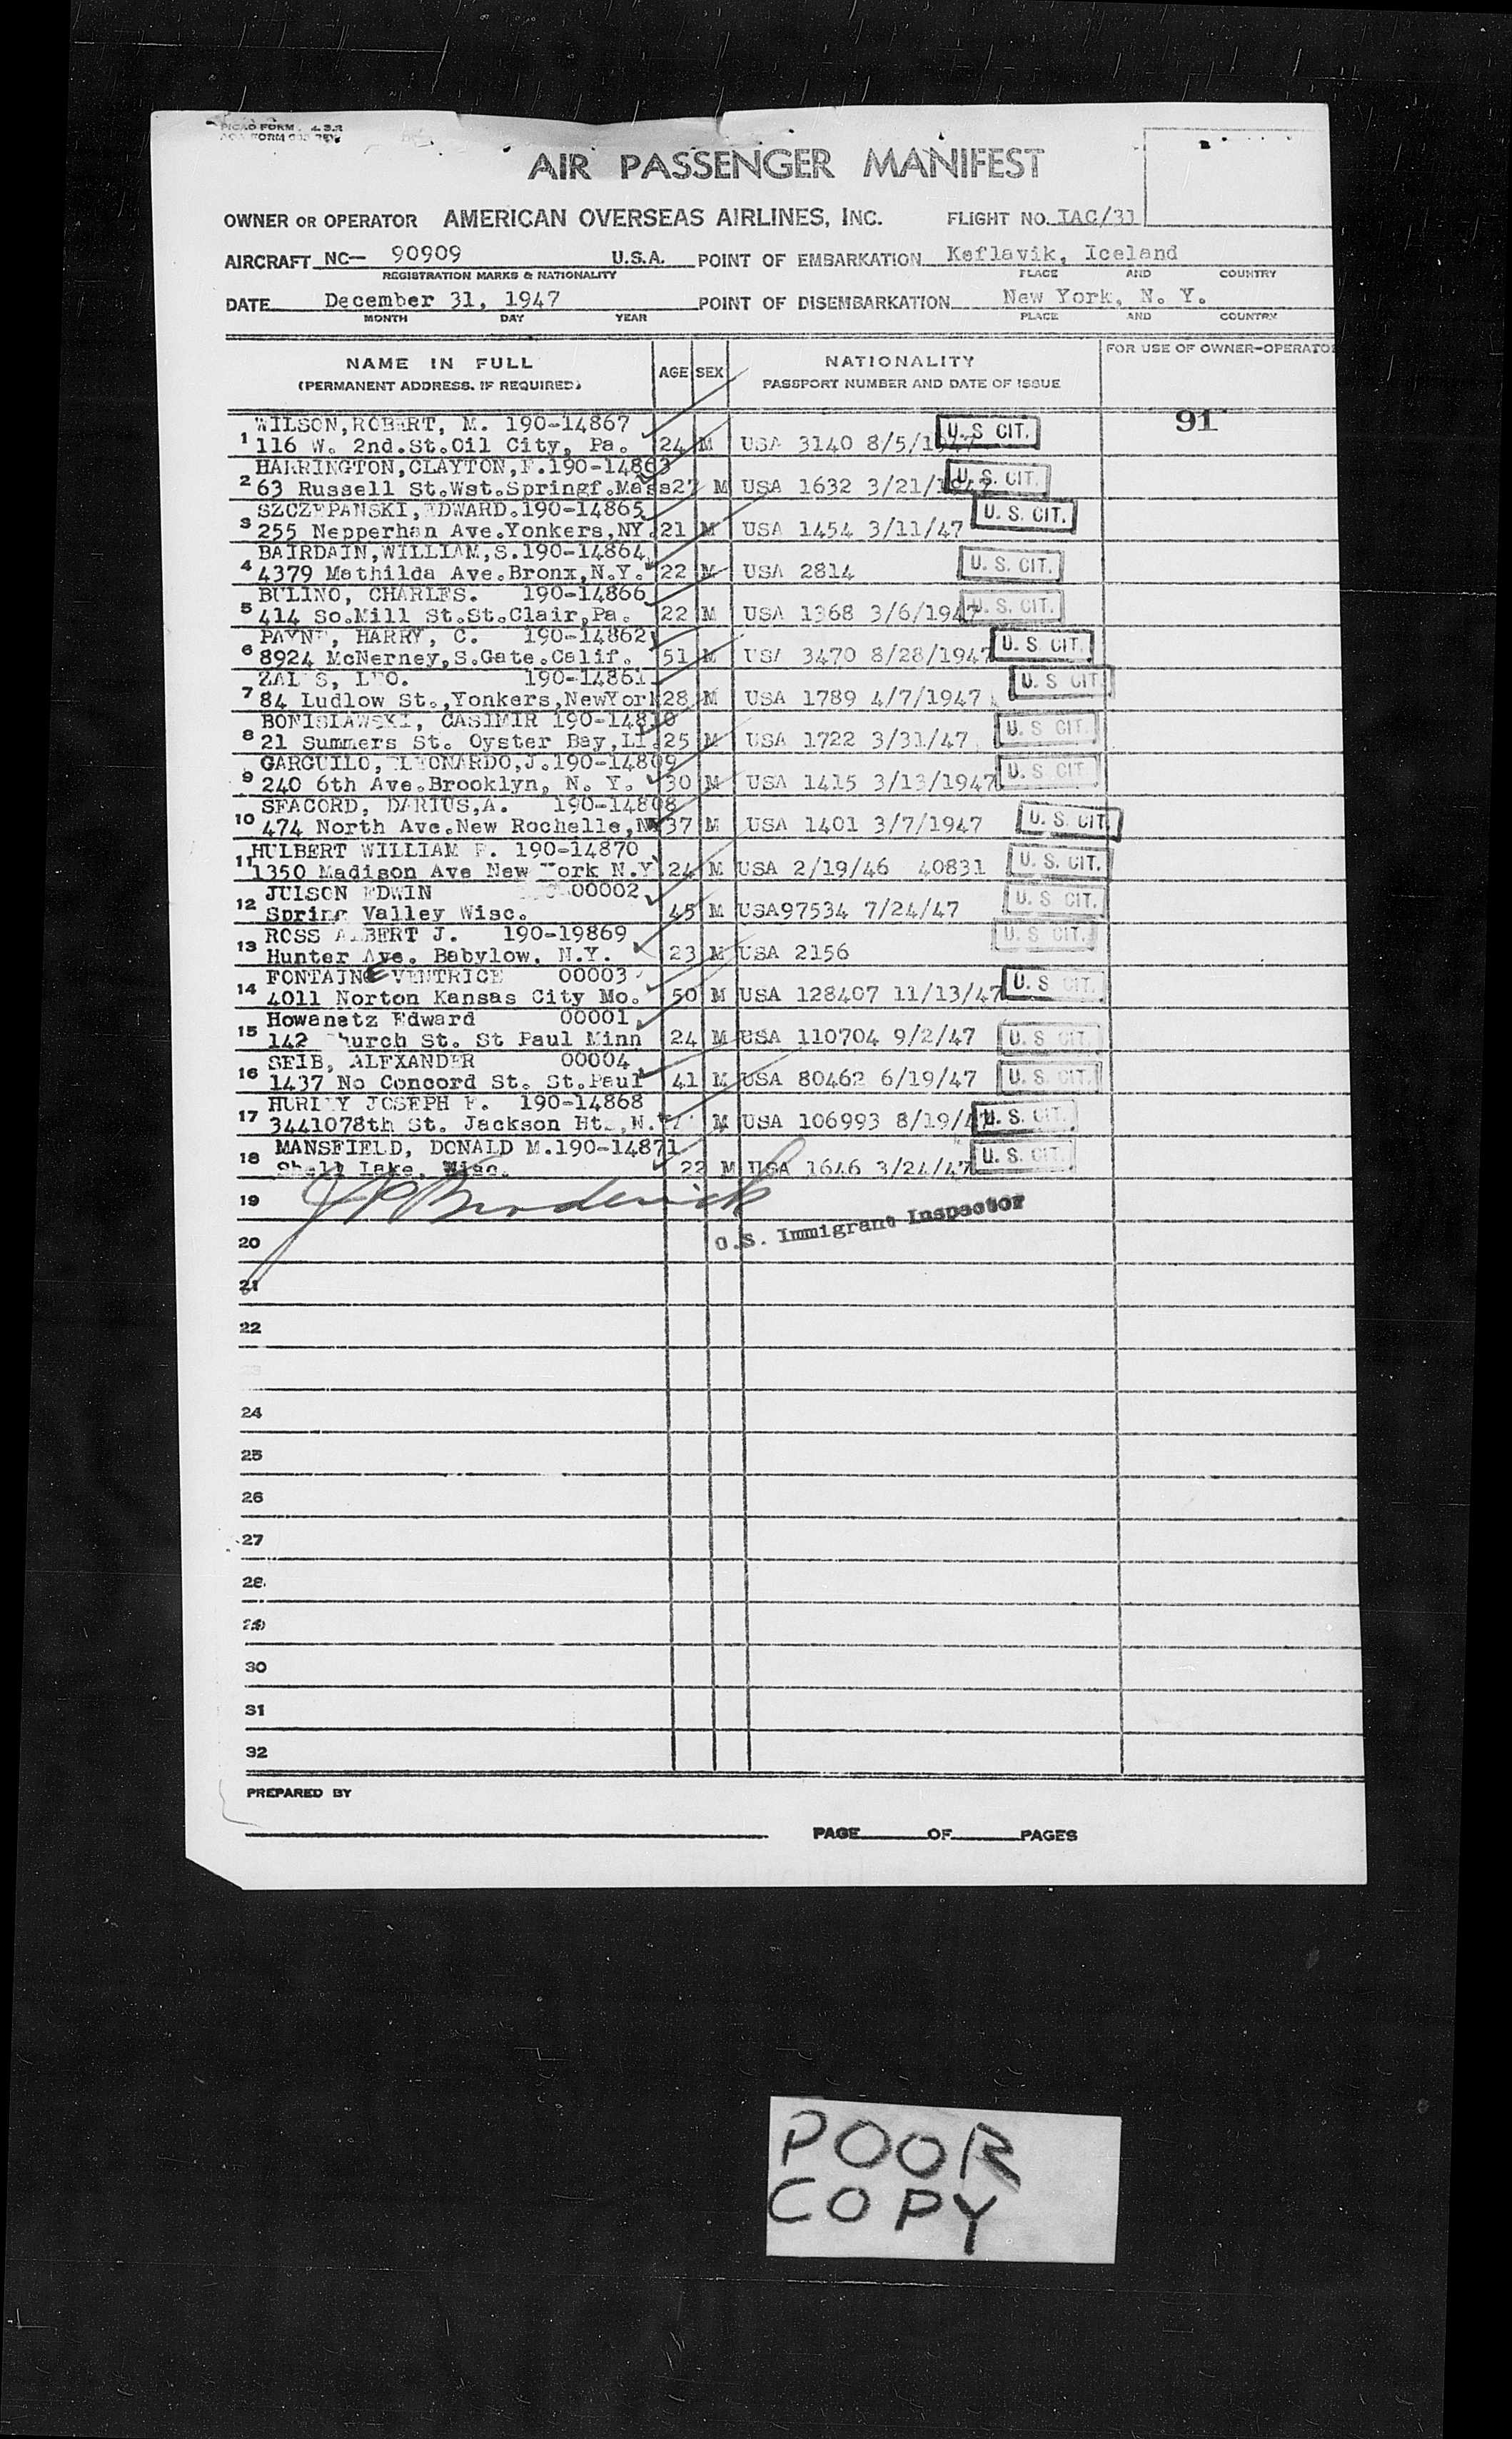 AIR PASSENGER MANIFEST
OWNER OR OPERATOR AMERICAN OVERSEAS AIRLINES, INC. FLIGHT NO. IAC/31
AIRCRAFT NC— 90909 U.S.A. POINT OF EMBARKATION Keflavik, Iceland
REGISTRATION MARKS & NATIONALITY PLACE AND COUNTRY
DATE December 31, 1947 POINT OF DISEMBARKATION New York, N. Y.
MONTH DAY YEAR PLACE AND COUNTRY
NAME IN FULL AGE SEX NATIONALITY FOR USE OF OWNER-OPERATOR
(PERMANENT ADDRESS, IF REQUIRED) PASSPORT NUMBER AND DATE OF ISSUE
WILSON,ROBERT, M. 190-14867 91
1 116 W. 2nd.St.Oil City, Pa. 24 M USA 3140 8/5/1947 U. S CIT.
HARRINGTON,CLAYTON,F.190-14863
2 63 Russell St.Wst.Springf.Mass 27 M USA 1632 3/21/1947 U. S. CIT.
SZCZEPANSKI,EDWARD.190-14865
3 255 Nepperhan Ave.Yonkers,NY. 21 M USA 1454 3/11/47 U. S. CIT.
BAIRDAIN,WILLIAM,S.190-14864
4 4379 Mathilda Ave.Bronx,N.Y. 22 M USA 2814 U. S. CIT.
BULINO, CHARLES. 190-14866
5 414 So.Mill St.St.Clair,Pa. 22 M USA 1368 3/6/1947 U. S. CIT.
PAYNE, HARRY, C. 190-14862
6 8924 McNerney,S.Gate.Calif. 51 M USA 3470 8/28/1947 U. S CIT.
ZALES, LEO. 190-14861
7 84 Ludlow St.,Yonkers,NewYork 28 M USA 1789 4/7/1947 U. S CIT.
BONISLAWSKI, CASIMIR 190-14810
8 21 Summers St. Oyster Bay,LI. 25 M USA 1722 3/31/47 U. S CIT.
GARGUILO, LEONARDO,J.190-14809
9 240 6th Ave.Brooklyn, N. Y. 30 M USA 1415 3/13/1947 U. S CIT.
SEACORD, DARIUS,A. 190-14808
10 474 North Ave.New Rochelle,NY 37 M USA 1401 3/7/1947 U. S. CIT.
HULBERT WILLIAM F. 190-14870
11 1350 Madison Ave New York N.Y 24 M USA 2/19/46 40831 U. S. CIT.
JULSON EDWIN 00002
12 Spring Valley Wisc. 45 M USA97534 7/24/47 U. S. CIT.
ROSS ALBERT J. 190-19869
13 Hunter Ave. Babylow, N.Y. 23 M USA 2156 U. S. CIT.
FONTAINE VENTRICE 00003
14 4011 Norton Kansas City Mo. 50 M USA 128407 11/13/47 U. S CIT.
Howanetz Edward 00001
15 142 Church St. St Paul Minn 24 M USA 110704 9/2/47 U. S CIT.
SEIB, ALEXANDER 00004
16 1437 No Concord St. St.Paul 41 M USA 80462 6/19/47 U. S. CIT.
HURLEY JOSEPH F. 190-14868
17 3441078th St. Jackson Ht.,N.Y. M USA 106993 8/19/47 U. S. CIT.
MANSFIELD, DONALD M.190-14871
18 Shell Lake, Wisc. 22 M USA 1646 3/24/47 U. S. CIT.
19 J P Broderick
20 U.S. Immigrant Inspector
21
22
23
24
25
26
27
28
29
30
31
32
PREPARED BY
PAGE OF PAGES
POOR
COPY